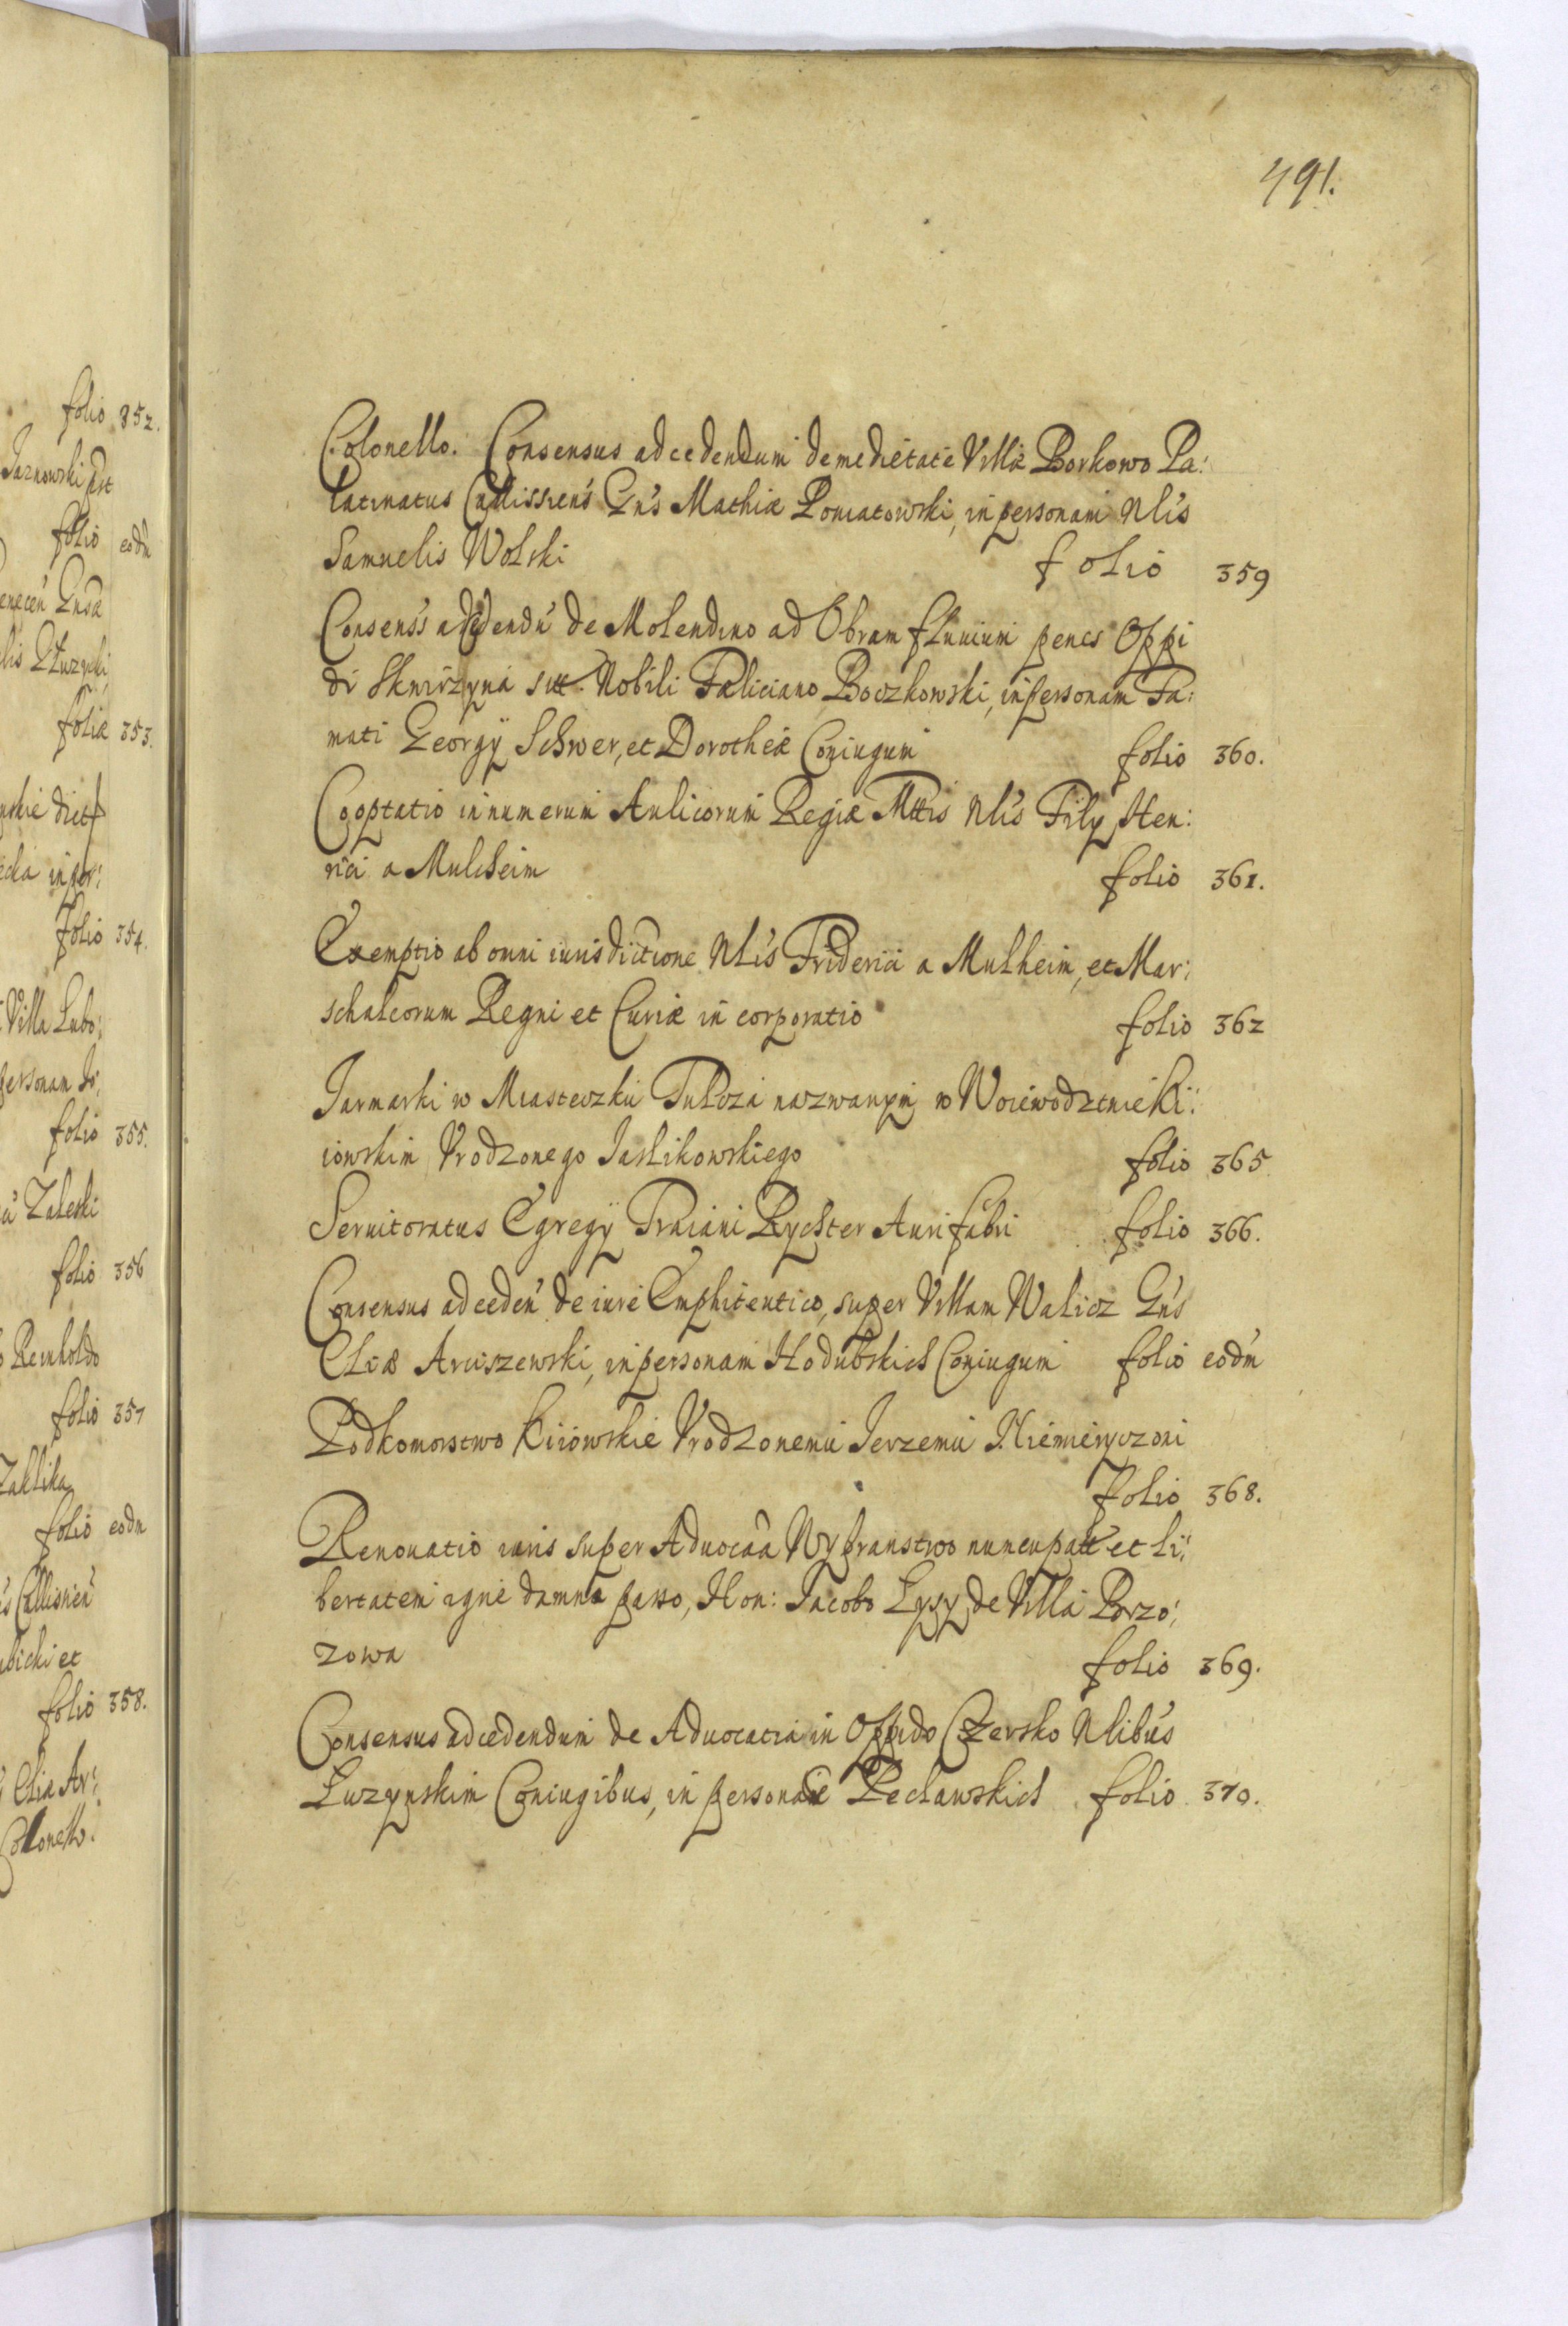 491.
Colonello. Consensus ad cedendum de medietate Villæ Borkowo Pa:
latinatus Callissiens Gn's Mathiæ Poniatowski, in personam Nlis
Samuelis Wolski folio 359
Consens's ad cedendu' de Molendino ad Obram fluuium penes Oppi
di Skwirzyna sitt. Nobili Fæliciano Boczkowski, in personam Fa:
mati Georgÿ Schwer, et Dorotheæ Coniugum folio 360.
Cooptatio in numerum Aulicorum Regiæ Mttis Nlis Fily Hen:
rici a Mulcheim folio 361.
Exemptio ab omni iurisdictione Nlis Friderici a Mulheim, et Mar:
schalcorum Regni et Curiæ in corporatio folio 362
Jarmarki w Miasteczku Tulcza nazwanym w Woiewodztwie Ki:
iowskim Vrodzonego Jaslikowskiego folio 365
Seruitoratus Egregÿ Traiani Rychter Aurifabri folio 366.
Consensus ad ceden' de iure Emphiteutico, super Villam Walicz Gn's
Eliæ Arciszewski, in personam Hodubskich Coniugum folio eodm
Podkomorstwo Kiiowskie Vrodzonemu Jerzemu Niemieryczoni
folio 368.
Renouatio iuris super Aduocaa Wybranstwo nuncupatt et li:
bertatem igne damna passo, Hon: Jacobo Lysy de Villa Borzo:
zowa folio 369.
Consensus ad cedendum de Aduocatia in Oppido Czersko Nlibus
Luzynskim Coniugibus, in personam Pechawskich folio 370.
folio 352.
Jarnowski
folio eodm
folio 353.
in per:
folio 354.
Villa Lubo:
personam
folio 355.
Zaleski
folio 356
Reinholdo
folio 357
Zaklika
folio eodm
Callisien'
et
folio 358.
Elia Ar:
Colonello.